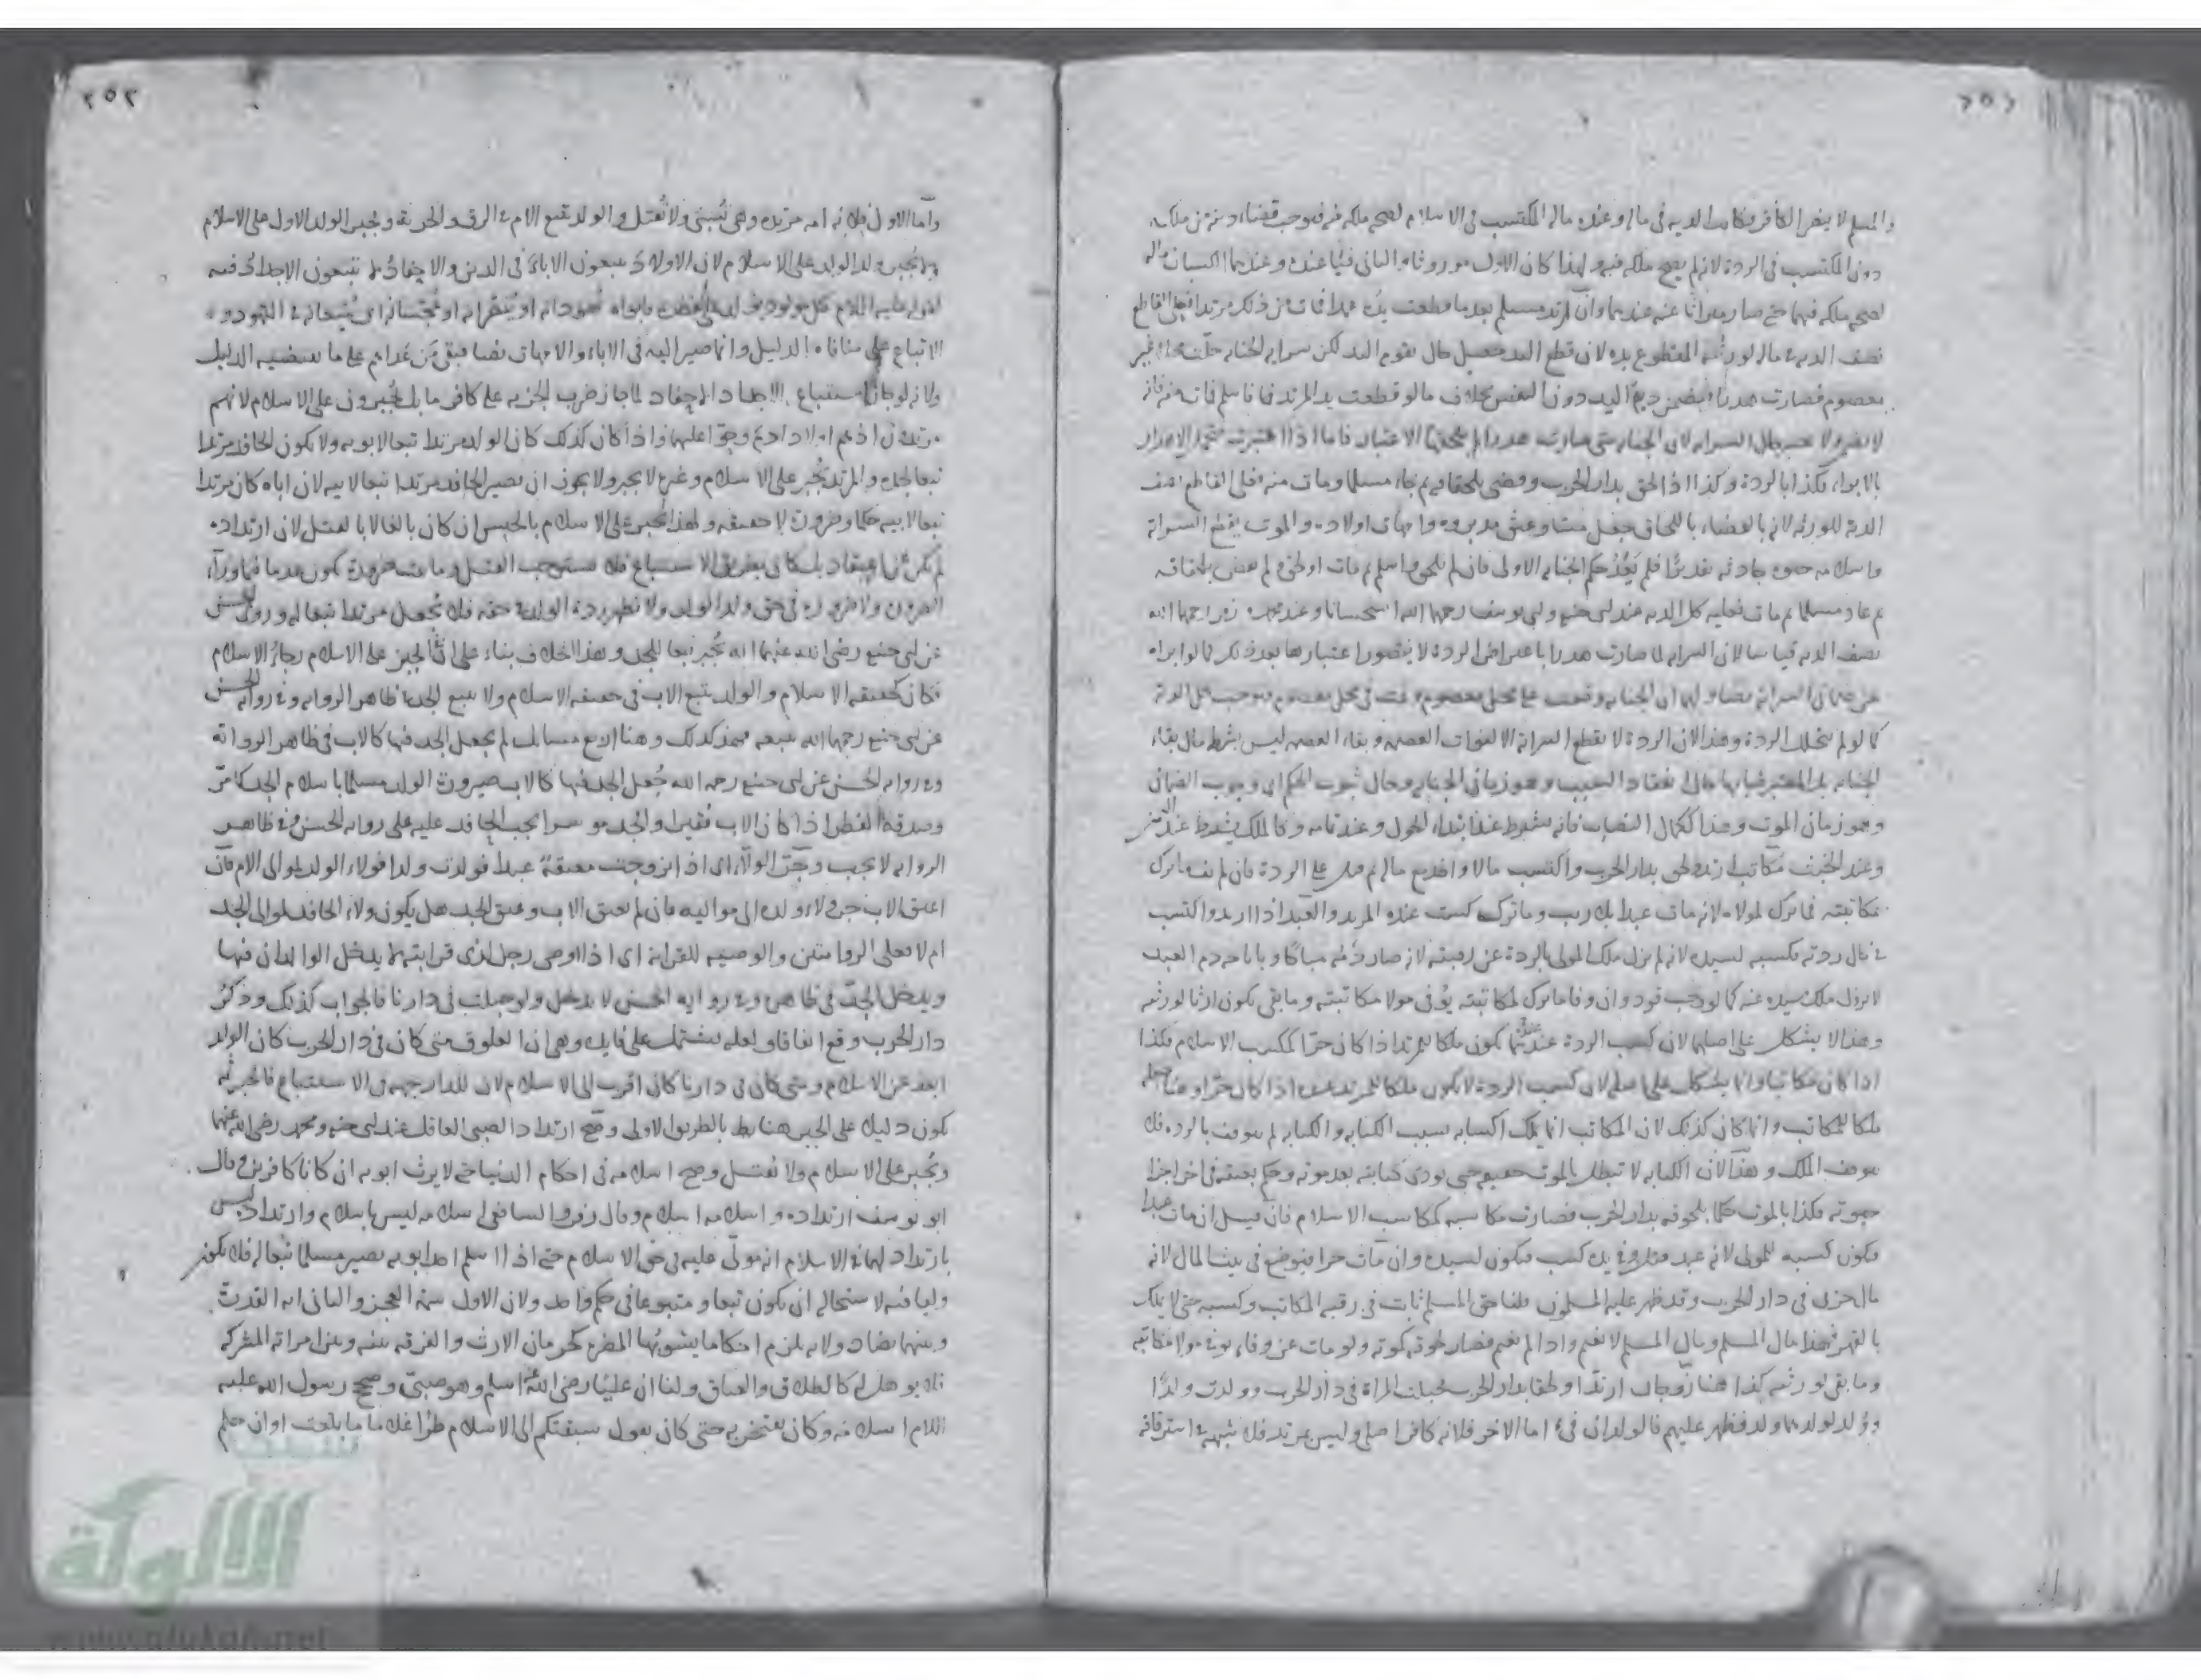 ٢٥١
والمسلم لا ينصر الكافر فكانت الدية في ماله وعنده ماله المكتسب في الاسلام لصحة ملكه فيه فوجب قضاء دينه من ملكه
دون المكتسب في الردة لانه لم يصح ملكه فيه ولهذا كان الاول موروثا والثاني فيئا عنده وعندهما اكتسابان ماله
لصحة ملكه فيهما حتى صار ميراثا عنه عندهما وان ارتد مسلم بعد ما قطعت يده عمدا فمات من ذلك مرتدا فعلى القاطع
نصف الدية في ماله لورثته المقطوع يده لان قطع اليد حصل حال تقوم اليد لكن سراية الجناية حلت محلا غير
معصوم فصارت هدرا فيضمن دية اليد دون النفس بخلاف ما لو قطعت يد المرتد فاسلم فمات منه فانه
لا يضمن لان الجناية متى صارت هدرا لم يلحقها الاعتبار فاما اذا اعتبرت الاهدار
بالابراء فكذا بالردة وكذا اذا لحق بدار الحرب وقضى بلحاقه ثم جاء مسلما ومات منه فعلى القاطع نصف
الدية للورثة لانه بالقضاء باللحاق جعل ميتا وعتق مدبروه وامهات اولاده والموت يقطع السراية
واسلامه حيوة حادثة تقديرا فلم يعد حكم الجناية الاولى فان لم يلحق واسلم ثم مات او لحق ولم يقض بلحاقه
ثم عاد مسلما ثم مات فعليه كل الدية عند ابي حنيفة وابي يوسف رحمهما الله استحسانا وعند محمد وزفر رحمهما الله
نصف الدية قياسا لان السراية لما صارت هدرا باعتراض الردة لا يتصور اعتبارها بعد ذلك كما لو ابراه
عن ضمان السراية نصا ولهما ان الجناية وقعت على محل معصوم وتمت في محل معصوم فيوجب كل الدية
كما لو لم يتخلل الردة وهذا لان الردة لا يقطع السراية الا لفوات العصمة وبقاء العصمة ليس بشرط حال بقاء
الجناية بل المعتبر قيامها حال انعقاد السبب وهو زمان الجناية وحال ثبوت الحكم اي وجوب الضمان
وهو زمان الموت وهذا ككمال النصاب فانه يشترط عند ابتداء الحول وعند تمامه وكالملك يشترط عند اليمين
وعند الحنث مكاتب ارتد ولحق بدار الحرب واكتسب مالا واخذ مع ماله ثم قتل على الردة فان لم يف ما ترك
مكاتبته فما ترك لمولاه لانه مات عبدا بلا ريب وما ترك كسب عبده المرتد والعبد اذا ارتد واكتسب
في حال ردته فكسبه لسيده لانه لم يزل ملك المولى بالردة عن رقبته لانه صار دمه مباحا وباباحة دم العبد
لا يزول ملك سيده عنه كما لو وجب قود وان وفا ما ترك لمكاتبته يوفى مولاه مكاتبته وما بقي يكون ارثا لورثته
وهذا لا يشكل على اصلهما لان كسب الردة عندهما يكون ملكا للمرتد اذا كان حرا ككسب الاسلام فكذا
اذا كان مكاتبا وانما يشكل على اصله لان كسب الردة لا يكون ملكا للمرتد عنده اذا كان حرا وهنا جعله
ملكا للمكاتب وانما كان كذلك لان المكاتب انما يملك اكسابه بسبب الكتابة والكتابة لم يتوقف بالردة فلا
يتوقف الملك وهذا لان الكتابة لا تبطل بالموت حقيقة حتى يودى كتابته بعد موته وحكم بعتقه في اخر اجزاء
حيوته فكذا بالموت حكما بلحوقه بدار الحرب فصارت مكاسبه كمكاسب الاسلام فان قيل ان مات عبدا
فيكون كسبه للمولى لانه عبد مرتد وفي يده كسب فيكون لسيده وان مات حرا فيوضع في بيت المال لانه
مال حربي في دار الحرب وقد ظهر عليه المسلمون قلنا حق المسلم ثابت في رقبة المكاتب وكسبه حتى لا يملك
بالقهر فهذا مال المسلم ومال المسلم لا يغنم واذا لم يغنم فصار لحوقه كموته ولو مات عن وفاء يوفى مولاه مكاتبته
وما بقي لورثته كذا هنا زوجان ارتدا ولحقا بدار الحرب فحبلت المراة في دار الحرب وولدت ولدا
وولد لولدهما ولد فظهر عليهم فالولدان فيء اما الاخر فلانه كافر اصلي وليس بمرتد فلا شبهة في استرقاقه
٢٥٢
واما الاول فلان امه مرتدة وهي تسبى ولا تقتل والولد يتبع الام في الرق والحرية ويجبر الولد الاول على الاسلام
ولا يجبر ولد الولد على الاسلام لان الاولاد يتبعون الاباء في الدين والاحفاد لا يتبعون الاجداد فيه
لقوله عليه السلام كل مولود يولد على الفطرة فابواه يهودانه او ينصرانه او يمجسانه اي يتبعانه في التهود و
الاتباع على منافاة الدليل وانما صير اليه في الاباء والامهات نصا فبقي من عداهم على ما يقتضيه الدليل
ولانه لو جاز استتباع الاجداد الاحفاد لما جاز ضرب الجزية على كافر ما بل يجبرون على الاسلام لانهم
مرتدون اذ هم اولاد ادم وحوا عليهما واذا كان كذلك كان الولد مرتدا تبعا لابويه ولا يكون الحافد مرتدا
تبعا لجده والمرتد يجبر على الاسلام وغيره لا يجبر ولا يجوز ان يصير الحافد مرتدا تبعا لابيه لان اباه كان مرتدا
تبعا لابيه حكما وضرورة لا حقيقة ولهذا يجبر على الاسلام بالحبس ان كان بالغا لا بالقتل لان ارتداده
لم يكن عن اعتقاد بل كان بطريق الاستتباع فلا يستوجب القتل وما ثبت ضرورة يكون عدما فيما وراء
الضرورة ولا ضرورة في حق ولد الولد ولا تظهر ردة الولد في حقه فلا يجعل مرتدا تبعا له وروى الحسن
عن ابي حنيفة رضى الله عنهما انه يجبر تبعا للجد وهذا الخلاف بناء على ان الجبر على الاسلام
فكان كحقيقة الاسلام والولد يتبع الاب في حقيقة الاسلام ولا يتبع الجد في ظاهر الرواية وفي رواية الحسن
عن ابي حنيفة رحمهما الله يتبعه فهذا كذلك وهنا اربع مسائل لم يجعل الجد فيها كالاب في ظاهر الرواية
وفي رواية الحسن عن ابي حنيفة رحمه الله جعل الجد فيها كالاب صيرورة الولد مسلما باسلام الجد كما مر
وصدقة الفطر اذا كان الاب فقيرا والجد موسرا يجب الحافد عليه على رواية الحسن وفي ظاهر
الرواية لا يجب وجر الولاء اي اذا تزوجت معتقة عبدا فولدت ولدا فولاء الولد لموالى الام فان
اعتق الاب جر ولاء ولده الى مواليه فان لم يعتق الاب وعتق الجد هل يكون ولاء الحافد لموالى الجد
ام لا فعلى الروايتين والوصية للقرابة اي اذا اوصى رجل لذي قرابته لا يدخل الوالدان فيها
ويدخل الجد في ظاهر وفي رواية الحسن لا يدخل ولو حبلت في دارنا فالجواب كذلك وذكر
دار الحرب وقع اتفاقا ولعله يشتمل على فايدة وهي ان العلوق متى كان في دار الحرب كان الولد
ابعد عن الاسلام ومتى كان في دارنا كان اقرب الى الاسلام لان للدار جهة في الاستتباع فالجبر ثمه
يكون دليلا على الجبر هنا بالطريق الاولى وصح ارتداد الصبي العاقل عند ابي حنيفة ومحمد رضى الله عنهما
ويجبر على الاسلام ولا يقتل وصح اسلامه في احكام الدنيا حتى لا يرث ابويه ان كانا كافرين وقال
ابو يوسف ارتداده واسلامه اسلام وقال زفر والشافعي اسلامه ليس باسلام وارتداده ليس
بارتداد لهما في الاسلام انه مولى عليه في حق الاسلام حتى اذا اسلم احد ابويه يصير مسلما تبعا له فلا يكون
وليا فيه لاستحالة ان يكون تبعا ومتبوعا في حكم واحد ولان الاول سمة العجز والثاني اية القدرة
وبينهما تضاد ولانه يلزم احكاما يشوبها المضرة كحرمان الارث والفرقة بينه وبين امراته المشركة
فلا يوهل له كالطلاق والعتاق ولنا ان عليا رضى الله عنه اسلم وهو صبي وصحح رسول الله عليه
السلام اسلامه وكان يفتخر به حتى كان يقول سبقتكم الى الاسلام طرا غلاما ما بلغت اوان حلم
الألوكة